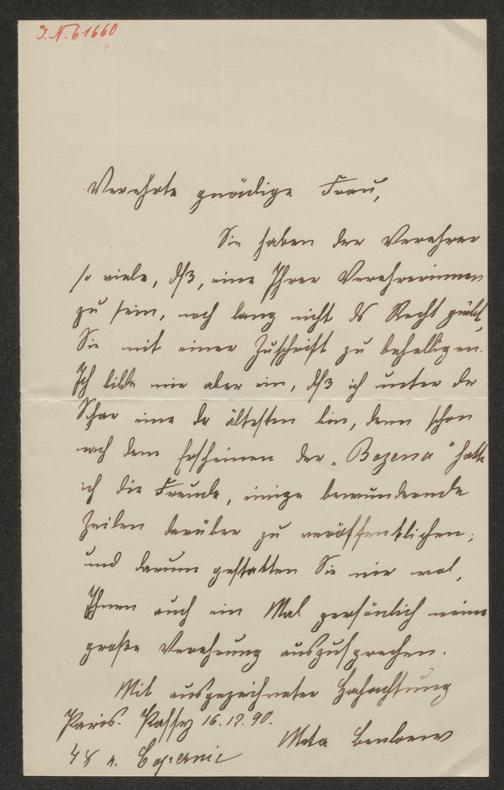 J.N. 61660
Verehrte gnädige Frau,
Sie haben der Verehrer
so viele, dß, eine Ihrer Verehrerinnen
zu sein, noch lang nicht ds Recht gibt,
Sie mit einer Zuschrift zu behelligen.
Ich bilde mir aber ein, dß ich unter der
Schar eine der ältesten bin, denn schon
nach dem Erscheinen der „Bozena" hatte
ich die Freude, einige bewundernde
Zeilen darüber zu veröffentlichen;
und darum gestatten Sie mir wol,
Ihnen auch ein Mal persönlich meine
große Verehrung auszusprechen.
Mit ausgezeichneter Hochachtung
Paris. Passy 16.12.90.
Meta Benloew
48 r. Copernic